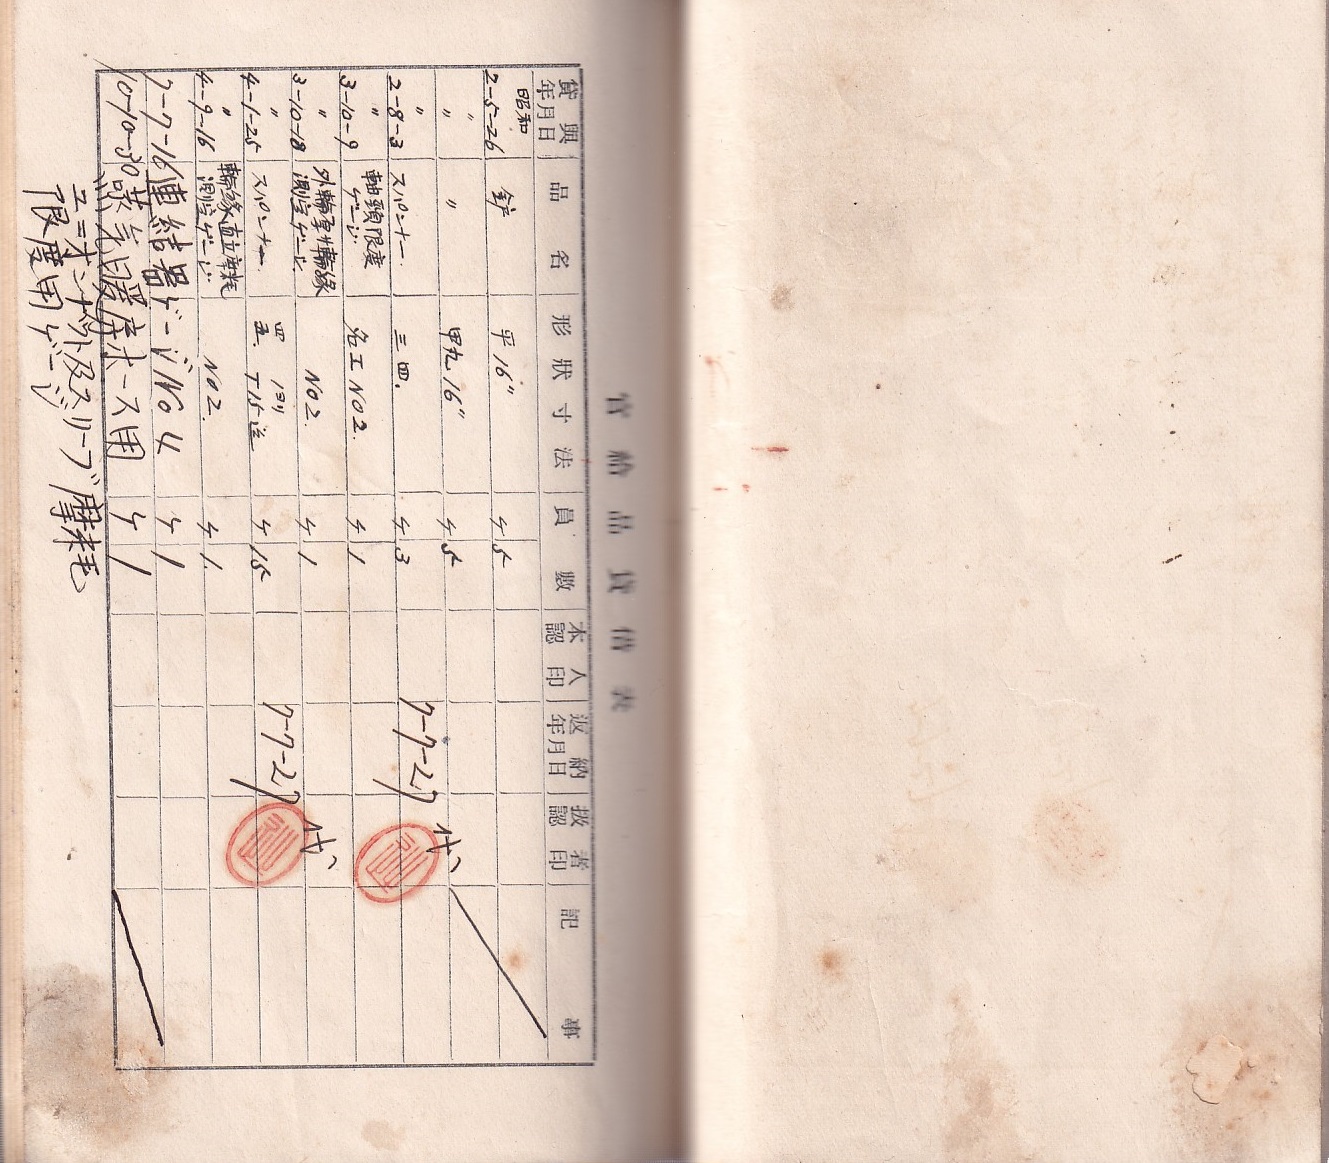 官給品貸借表
貸與年月日 品名 形狀寸法 員數 本人認印 返納年月日 扱者認印 記事
昭和
2-5-26 鈩 平16" ケ 5
〃 〃 甲丸16" ケ 5
〃
2-8-3 スパンナー. 三四. ケ 3 7-7-27
〃
3-10-9 軸頭限度ゲージ 名工 NO2. ケ 1
〃
3-10-18 外輪厚輪緣測定ゲージ NO2. ケ 1
〃
4-1-25 スパンナー. 四五. T15迄 ケ 15 7-7-27
〃
4-9-16 輪緣直立摩耗測定ゲージ NO2. ケ 1.
7-7-16 連結器ゲージNO4 ケ 1
10-10-30 蒸气暖房ホース用 ケ 1
ユニオンナット及スリーブ摩耗
限度用ゲージ